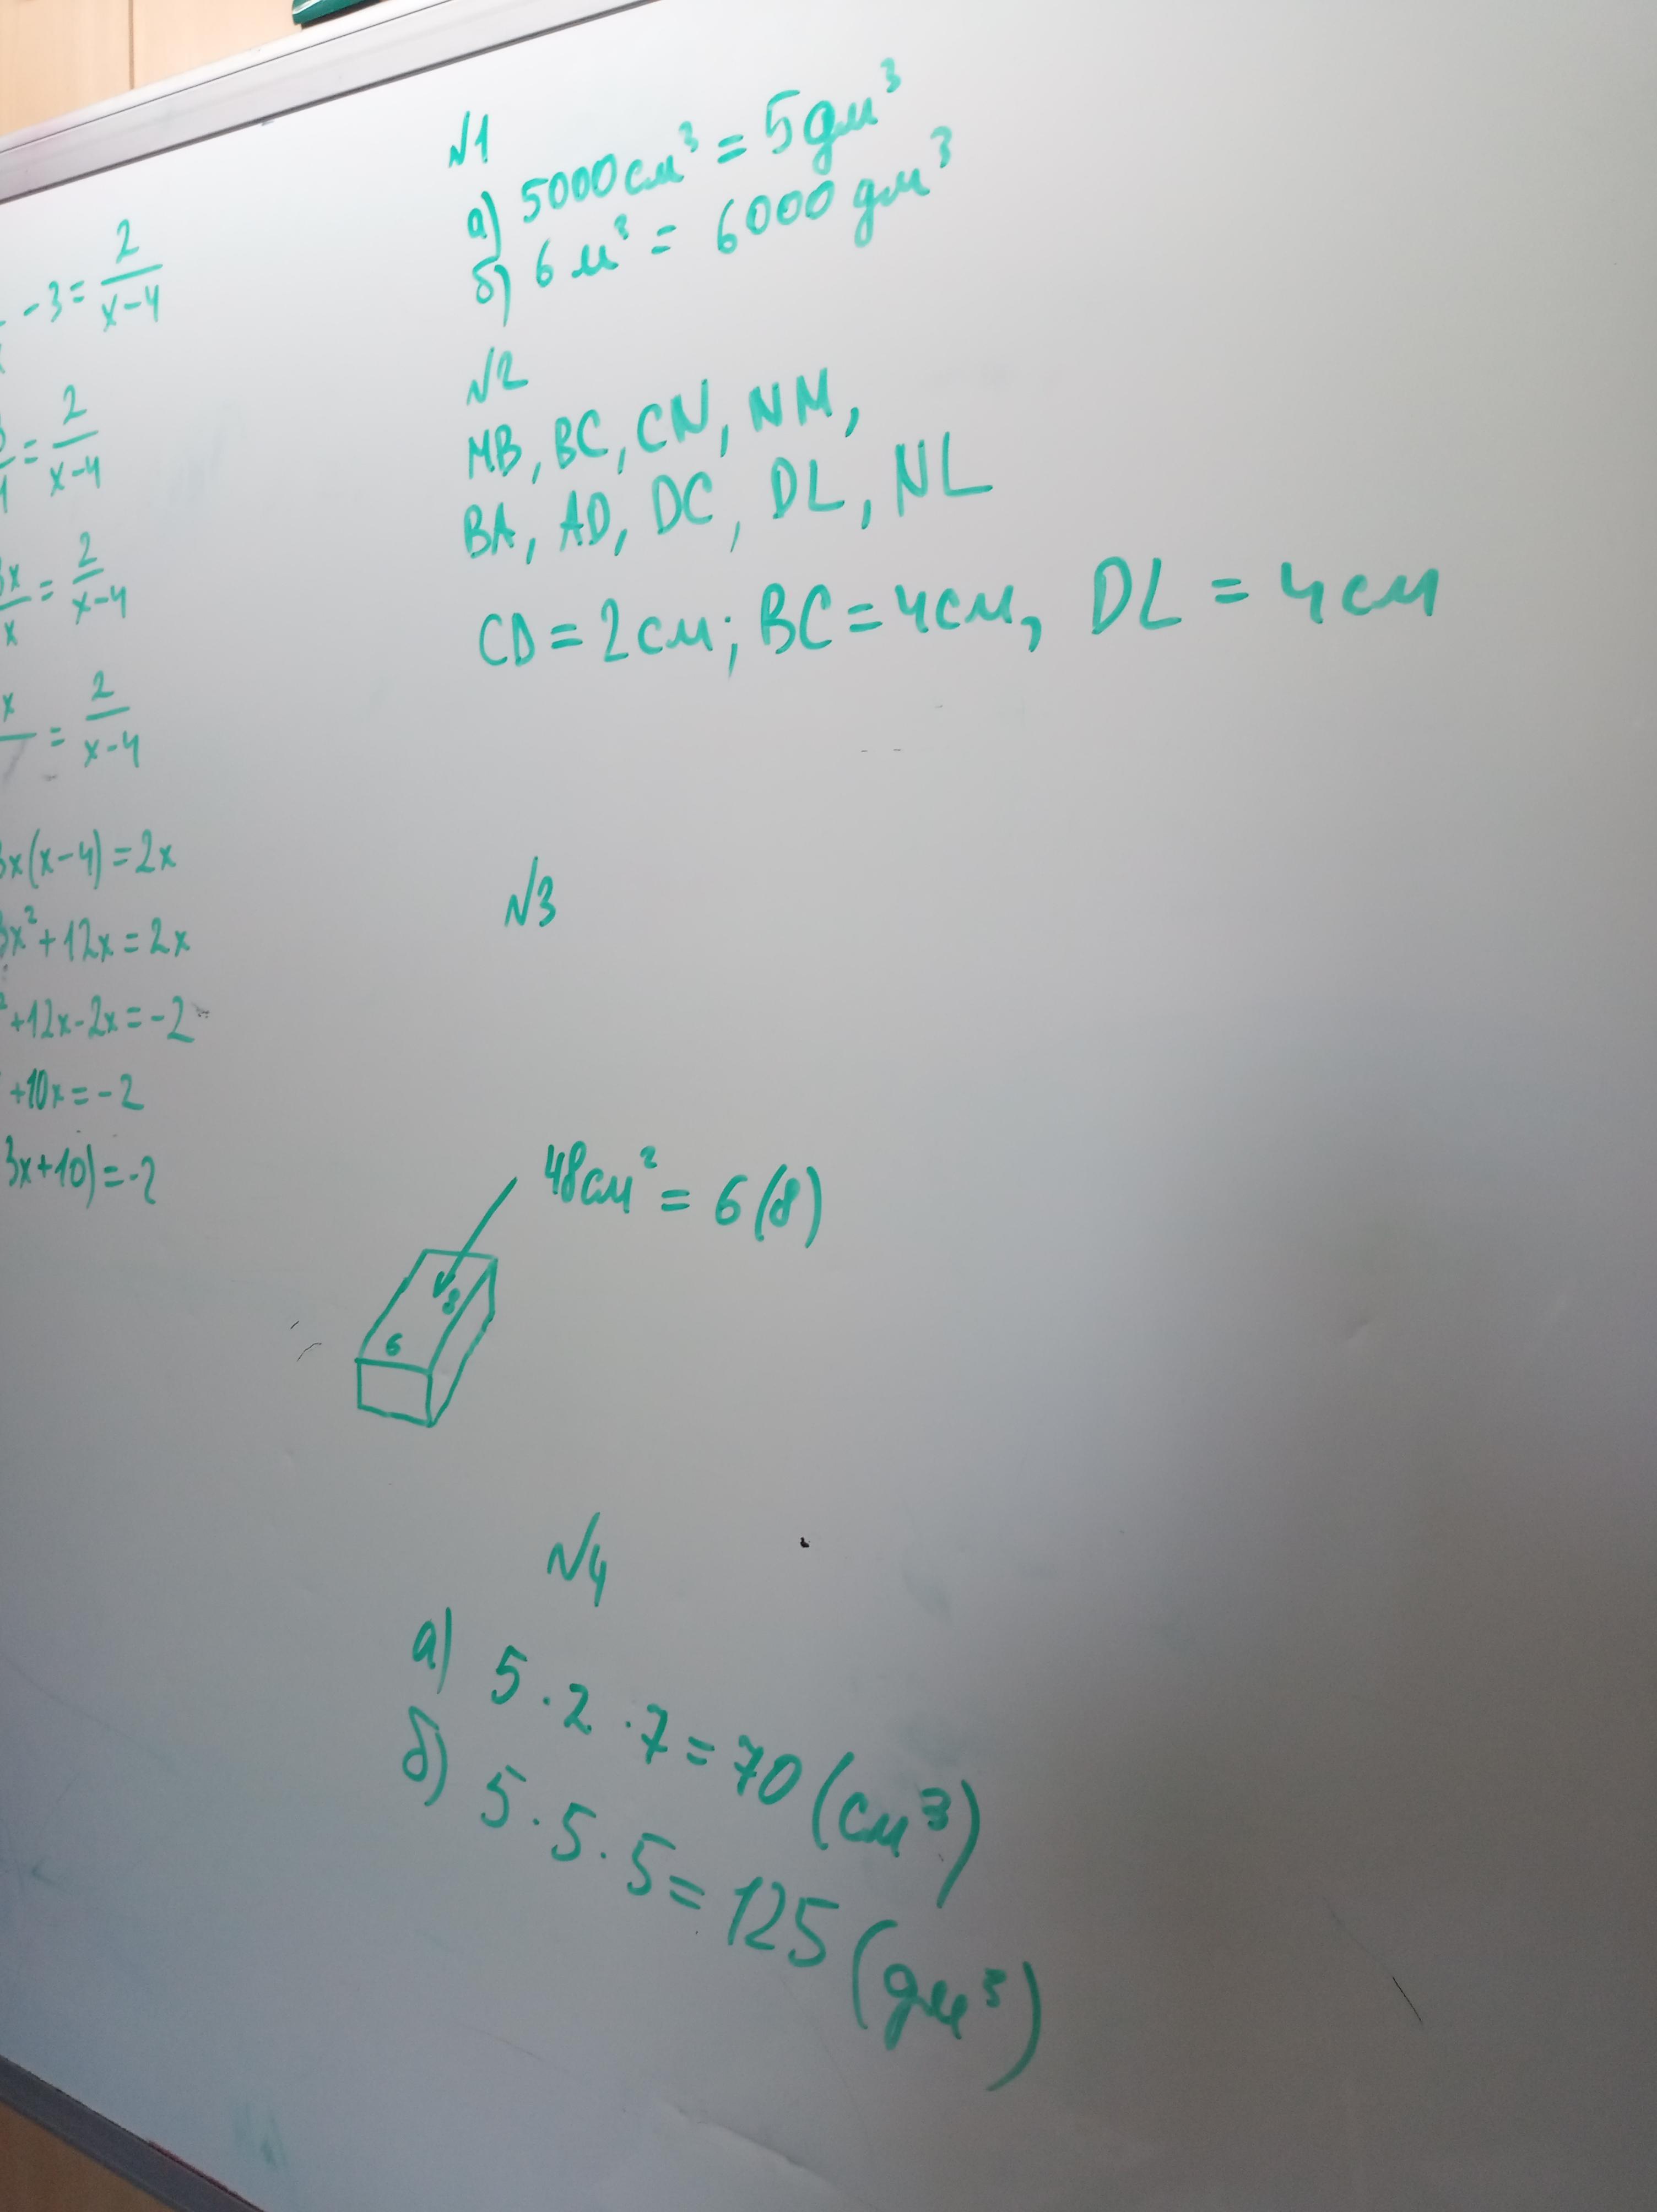 -3 = 2/(x-4)
= 2/(x-4)
3x/x = 2/(x-4)
x = 2/(x-4)
3x(x-4) = 2x
3x² + 12x = 2x
² + 12x - 2x = -2
+ 10x = -2
3x + 10) = -2
№1
а) 5000 см³ = 5 дм³
б) 6 м³ = 6000 дм³
№2
MB, BC, CN, NM,
BA, AD, DC, DL, NL
CD = 2 см; BC = 4 см, DL = 4 см
№3
48 см² = 6(8)
8
6
№4
а) 5 · 2 · 7 = 70 (см³)
б) 5 · 5 · 5 = 125 (дм³)